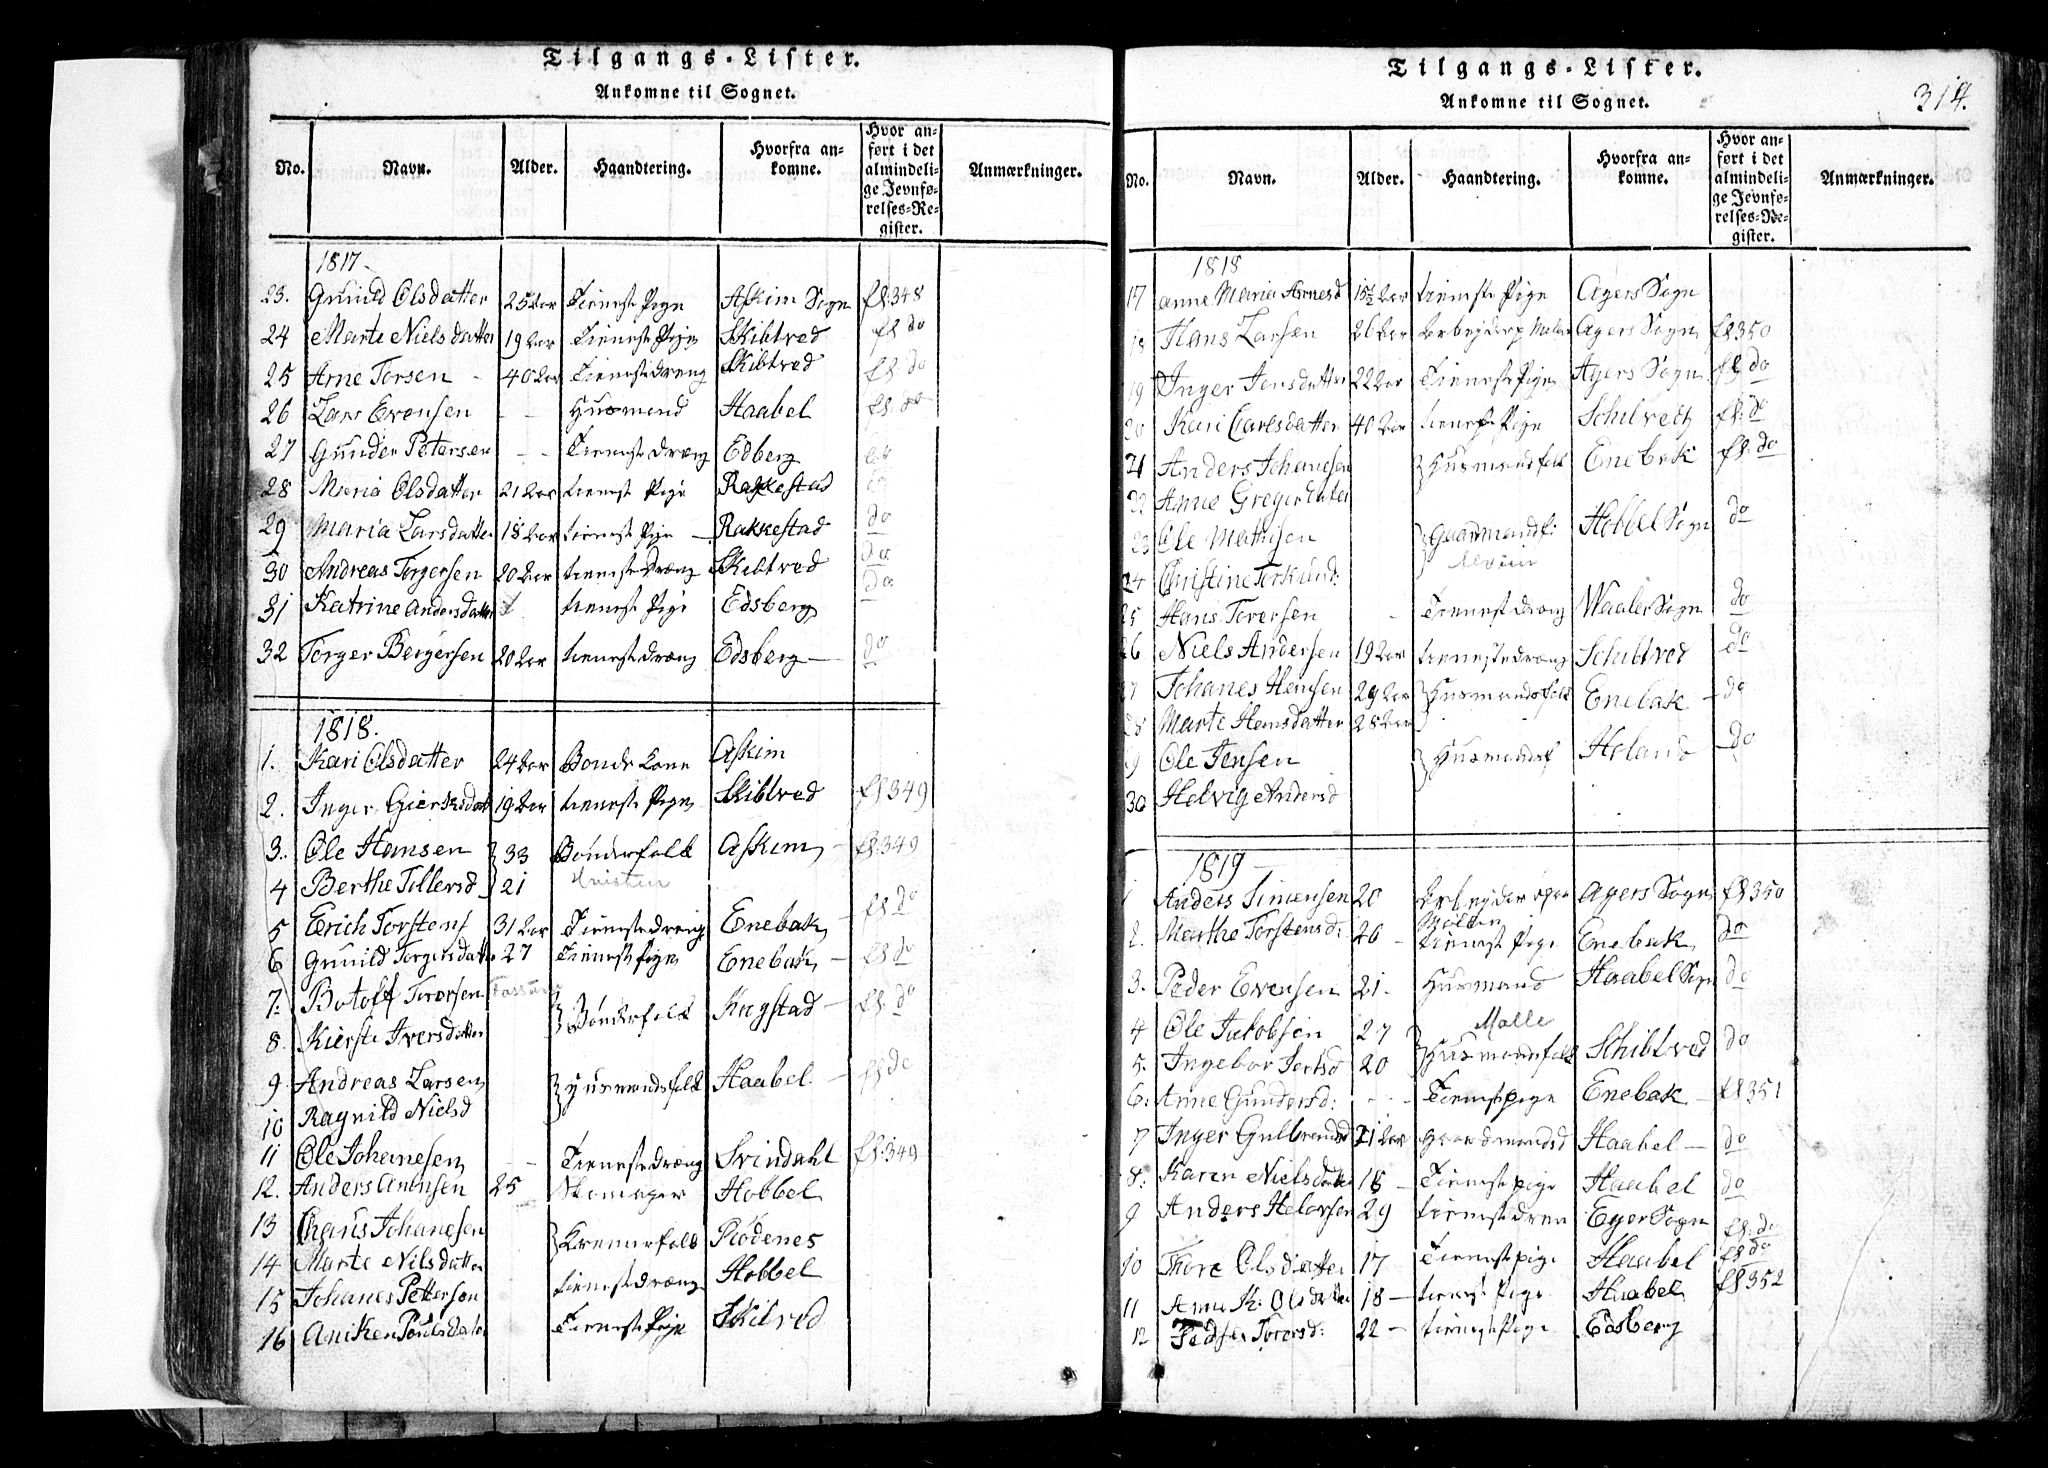 Tilgangs-Lister.
Ankomne til Sognet.
No. Navn. Alder. Haandtering. Hvorfra ankomne. Hvor anført i det almindelige Jevnførelses-Register. Anmærkninger.
1817
23. Gunild Olsdatter 25 Aar Tieneste Pige Askim Sogn fl: 348
24 Marte Nielsdatter 19 Aar Tieneste Pige Skibtved fl do
25 Arne Torsen 40 Aar Tienestedreng Skibtved fl do
26 Lars Evensen - - Husmand Haabel fl. do
27 Gunder Petersen - - Tienestedræng Edberg
28 Maria Olsdatter 21 Aar tieneste Pige Rakkestad
29 Maria Larsdatter 18 Aar tieneste Pige Rakkestad do
30 Andreas Torgersen 20 Aar tienestedræng Skibtved do
31 Katrine Andersdatter tieneste Pige Edsberg do
32 Torger Bergersen 20 Aar tienestedræng Edsberg do
1818.
1. Kari Olsdatter 24 Aar Bonde Kone Askim
2. Inger Gierlsdatt 19 Aar tieneste Pige Skibtved fl 349
3. Ole Hansen 33 Bønderfolk Askim fl: 349
4 Berthe Tollersd 21
5 Erich Torstens 31 Aar Tienestedreng Enebak fl do
6 Gunild Torgersdatter 27 Tieneste Pige Enebak fl do
7. Botolf Torersen Bønderfolk Kragstad fl. do
8. Kierste Iversdatter
9 Andreas Larsen Husmandsfolk Haabel fl do
10 Ragnild Nielsd
11 Ole Johanesen - Tienestedræng Svindahl fl: 349
12. Anders Anensen 25 Skomager Hobbel
13 Johanesen Kremerfolk Rødenes
14 Marte Nilsdatter
15 Johanes Petterson tienestedræng Hobbel
16 Aniken Poulsdatter Tieneste Pige Skibtved
Tilgangs-Lister.
Ankomne til Sognet.
314.
No. Navn. Alder. Haandtering. Hvorfra ankomne. Hvor anført i det almindelige Jevnførelses-Register. Anmærkninger.
1818
17 Anne Maria Arnesd 15½ Aar tieneste Pige Agers Sogn
18 Hans Larsen 26 Aar Agers Sogn fl 350
19 Inger Jensdatter 22 Aar Tieneste Pige Agers Sogn fl do
20 Kari Carlsdatter 40 Aar tieneste Pige fl: do
21 Anders Johanesen Husmandsfolk Enebak fl. do
22 Anne Gregerdatter
23 Ole Mathisen Gaarmandsf: Hobbel Sogn do
24 Christine Torkilds:
25 Hans Torersen - Tienestdræng Waaler Sogn do
26 Niels Andersen 19 Aar tienestedræng Schibtved do
27 Johanes Hansen 29 Aar Husmandsfolk Enebak do
28 Marte Hansdatter 28 Aar
9 Ole Jensen Husmandsf Holand do
30 Helvig Andersd
1819
1 Anders Simensen 20 Arbejder Agers Sogn fl 350
2. Marthe Torstensd: 26 tieneste Pige Enebak do
3. Peder Evensen 21. Husmand Haabel Sogn do
4 Ole Jakobsen 27 Husmandsfolk Schibtved do
5. Ingebor 20
6. Anne Gundersd: - - - Tienestpige Enebak fl 351
7 Inger Gulbrandsd 21 Aar Gaardmandsd Haabel do
8. Karen Nielsdatter 18 Tienestpige Haabel do
9 Anders Helgesen 29 tienestedren Eger Sogn fl. do
10 Thore Olsdatter 17 Tienestpige Haabel fl do
11 Anne K. Olsdatter 18 tieneste Pige Haabel fl 352
12 Torersd: 22 tienestePige Edsberg